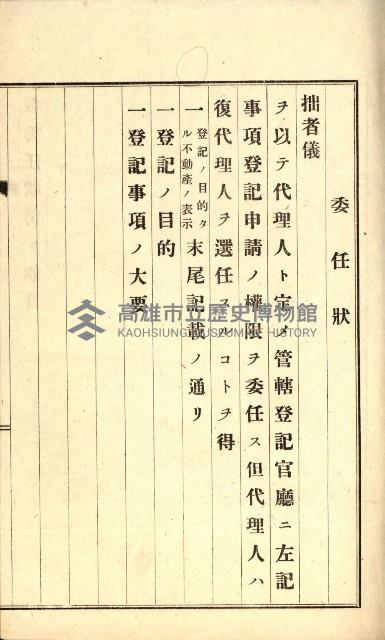 委任狀
拙者儀
ヲ以テ代理人ト定メ管轄登記官廳ニ左記
事項登記申請ノ權限ヲ委任ス但代理人ハ
復代理人ヲ選任スルコトヲ得
一登記ノ目的タル不動產ノ表示末尾記載ノ通リ
一登記ノ目的
一登記事項ノ大要
高雄市立歷史博物館
KAOHSIUNG MUSEUM OF HISTORY